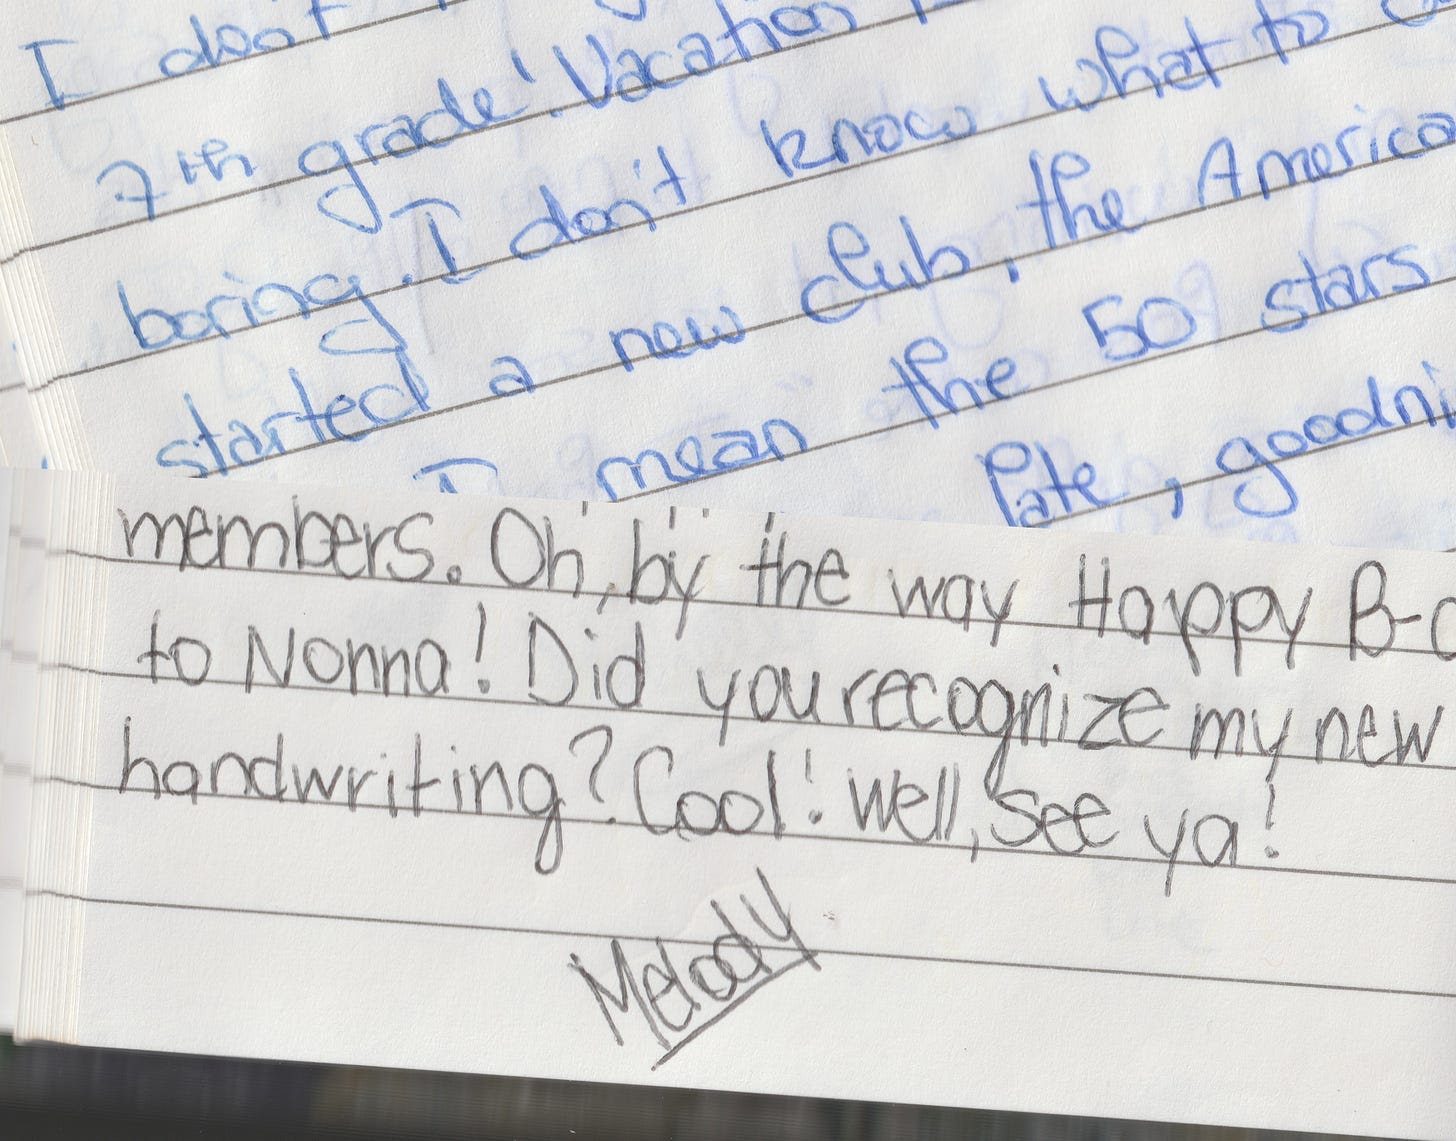 I don't
7th grade! Vacation
boring. I don't know what to
started a new club, the America
I mean the 50 stars
late, goodni
members. Oh, by the way Happy B-d
to Nonna! Did you recognize my new
handwriting? Cool! Well, see ya!
Melody